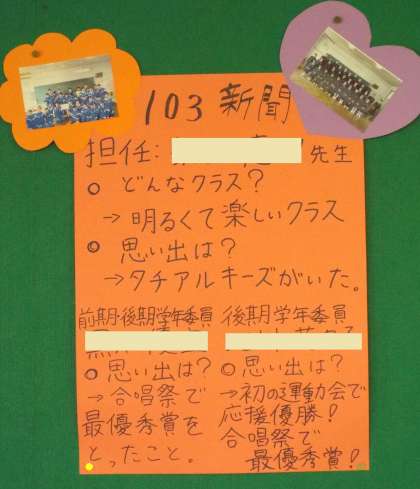 103 新聞
担任: 先生
○ どんなクラス?
→ 明るくて楽しいクラス
○ 思い出は?
→タチアルキーズがいた。
前期・後期学年委員
○ 思い出は?
→ 合唱祭で
最優秀賞を
とったこと。
後期学年委員
○ 思い出は?
→初の運動会で
応援優勝!
合唱祭で
最優秀賞!